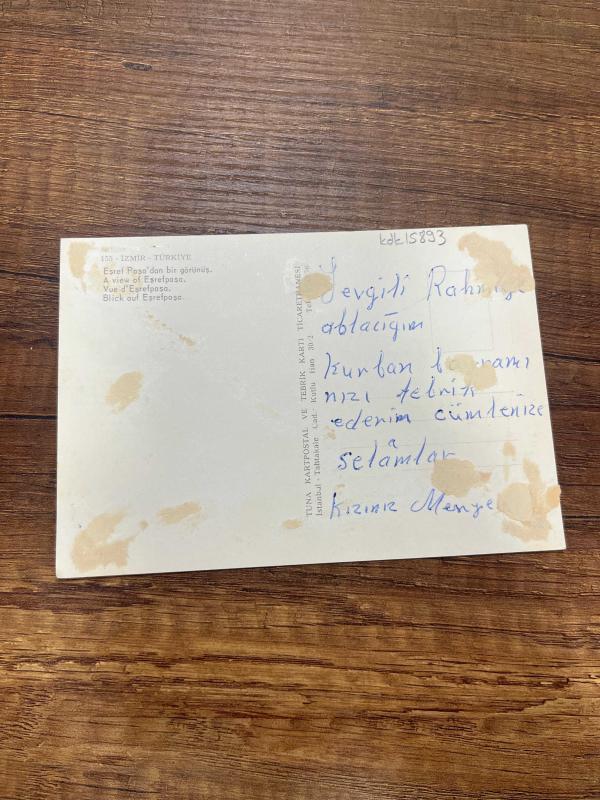 kdk15893
155 - İZMİR - TÜRKİYE
Eşref Paşa'dan bir görünüş.
A view of Eşrefpaşa.
Vue d'Eşrefpaşa.
Blick auf Eşrefpaşa.
TUNA KARTPOSTAL VE TEBRİK KARTI TİCARETHANESİ
İstanbul - Tahtakale Cad. Kutlu Han 30/2
Sevgili
ablacığım
Kurban bayramı
nızı tebrik
ederim cümlenize
selâmlar
Kızınız